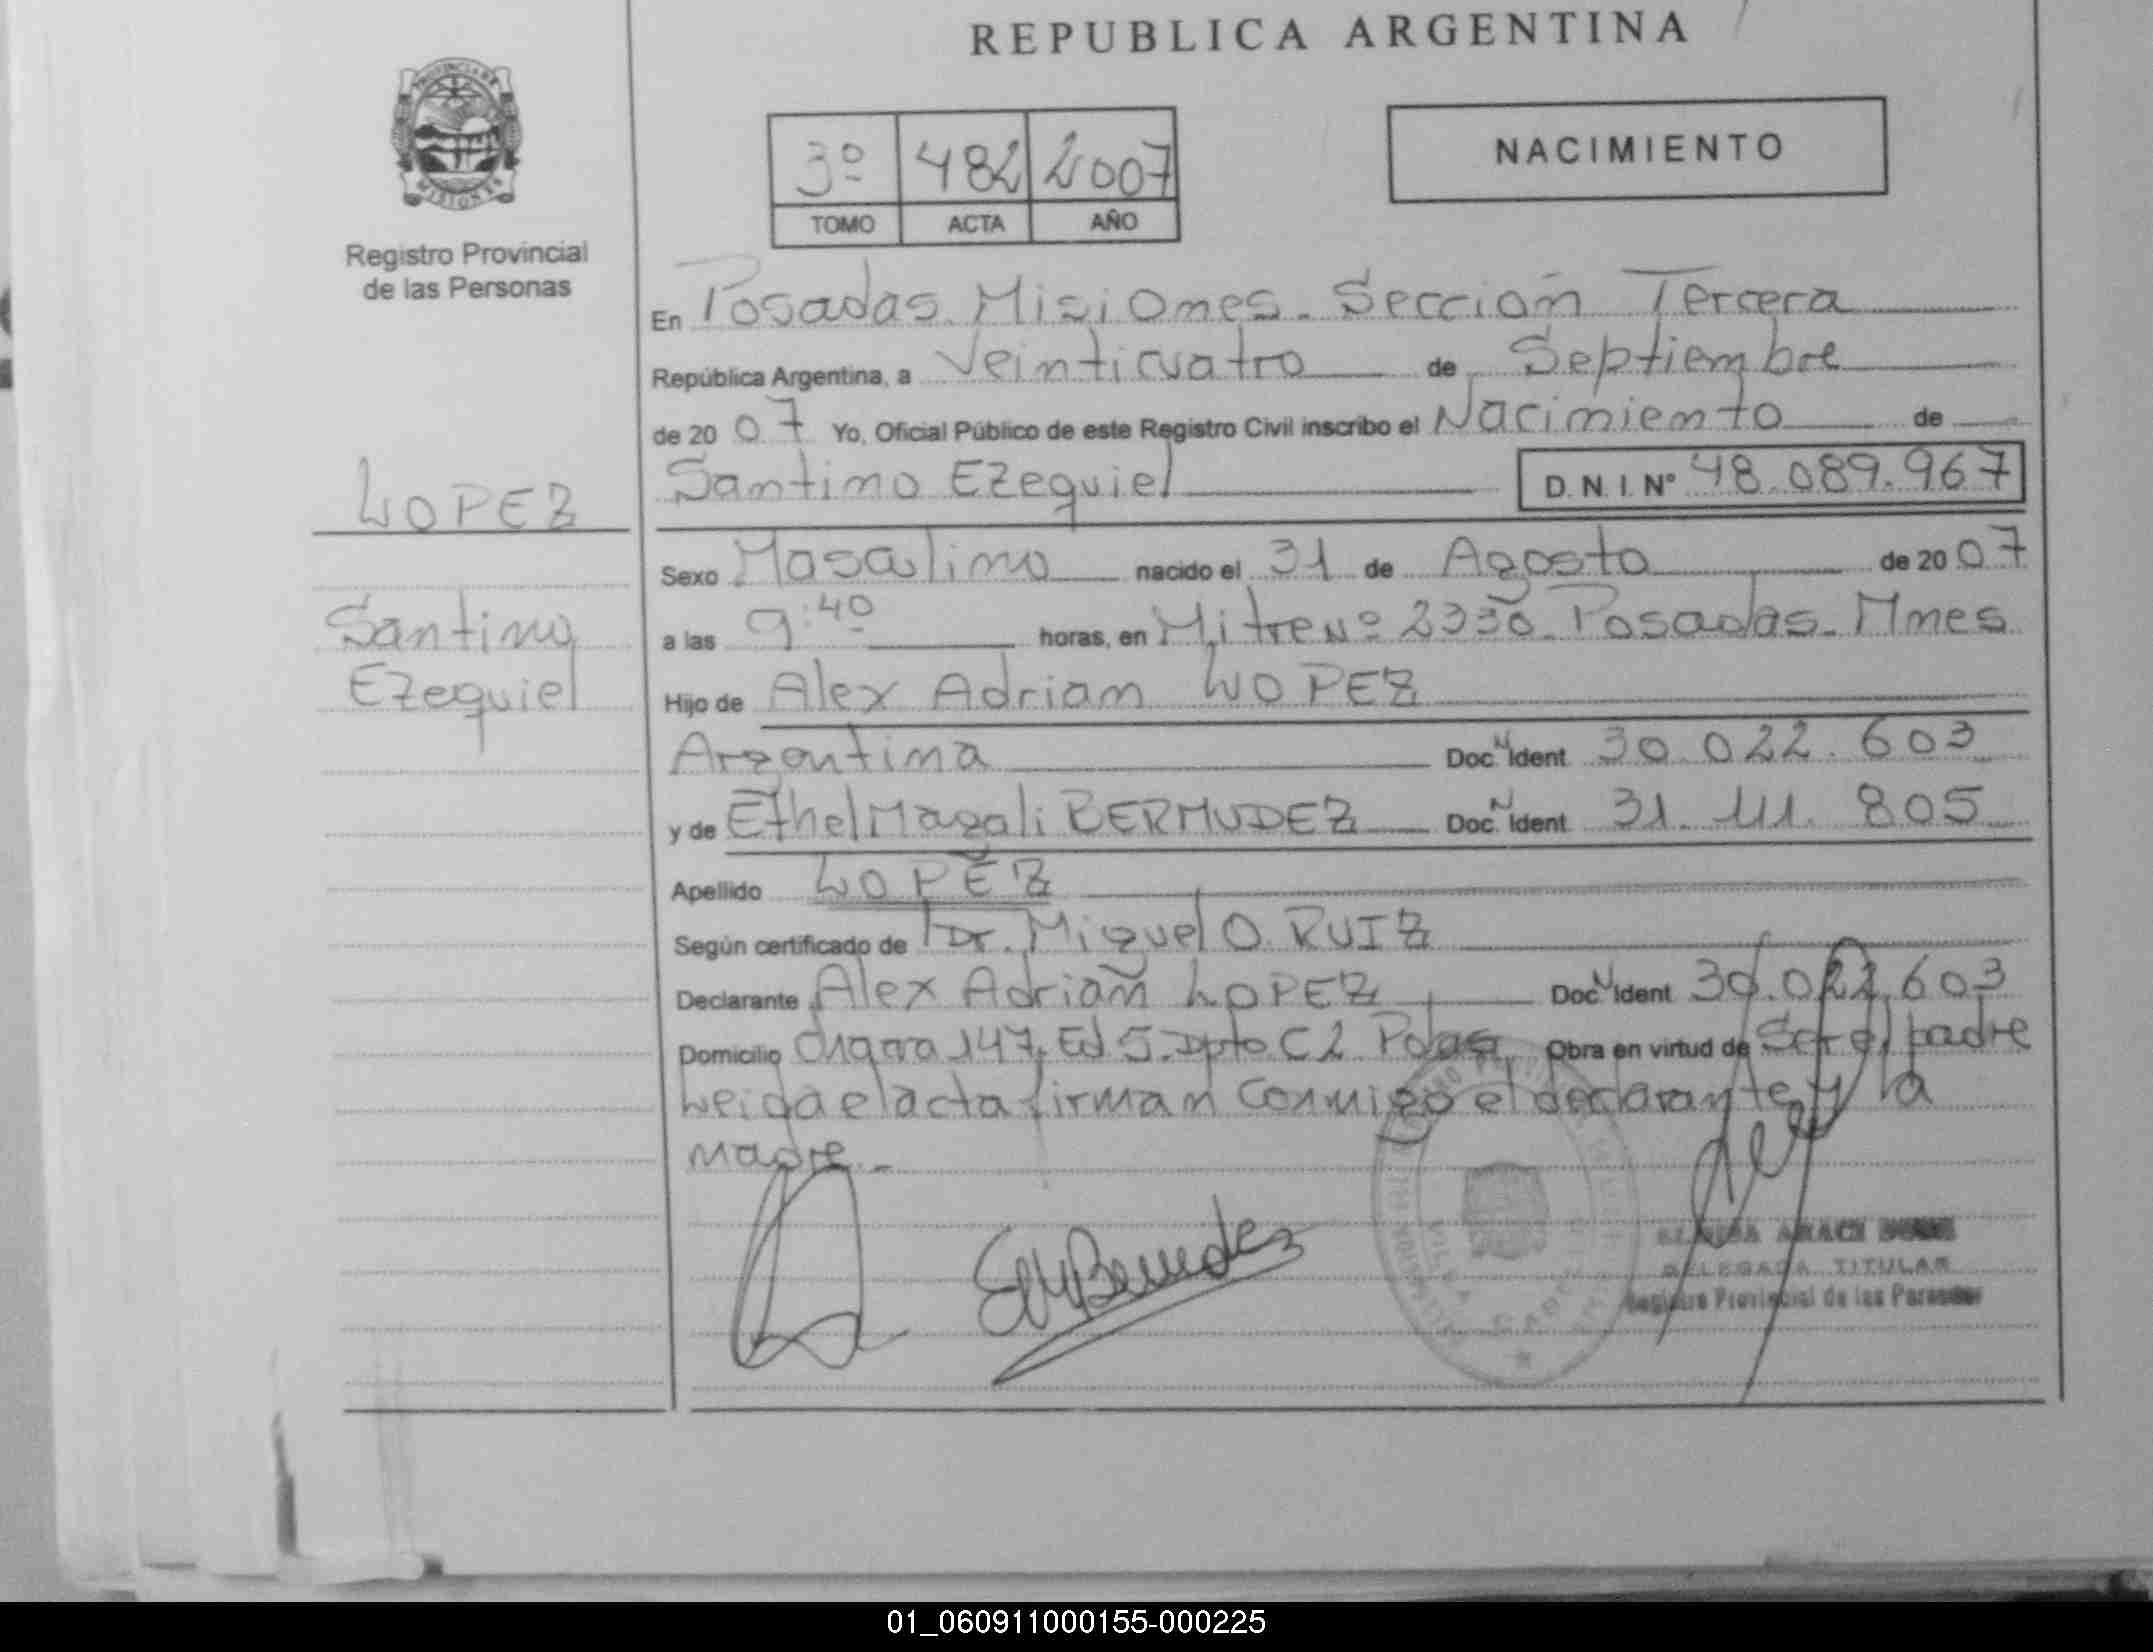 REPUBLICA ARGENTINA
PROVINCIA DE
MISIONES
Registro Provincial
de las Personas
3º 482 2007
TOMO ACTA AÑO
NACIMIENTO
En Posadas Misiones. Sección Tercera
República Argentina, a Veinticuatro de Septiembre
de 2007 Yo, Oficial Público de este Registro Civil inscribo el Nacimiento de
Santino Ezequiel D.N.I. Nº 48.089.967
LOPEZ
Santino
Ezequiel
Sexo Masculino nacido el 31 de Agosto de 2007
a las 9:40 horas, en Mitre Nº 2330. Posadas. Mnes
Hijo de Alex Adrian LOPEZ
Argentina Doc. N Ident 30.022.603
y de Ethel Magali BERMUDEZ Doc. N Ident 31.111.805
Apellido LOPEZ
Según certificado de Dr. Miguel O. RUIZ
Declarante Alex Adrian LOPEZ Doc N Ident 30.022.603
Domicilio Chacra 147. Ed 5. Dpto C2 Pdas Obra en virtud de Ser el padre
Leida el acta firman conmigo el declarante y la
madre.
EMBermudez
DELEGADA TITULAR
Registro Provincial de las Personas
01_060911000155-000225